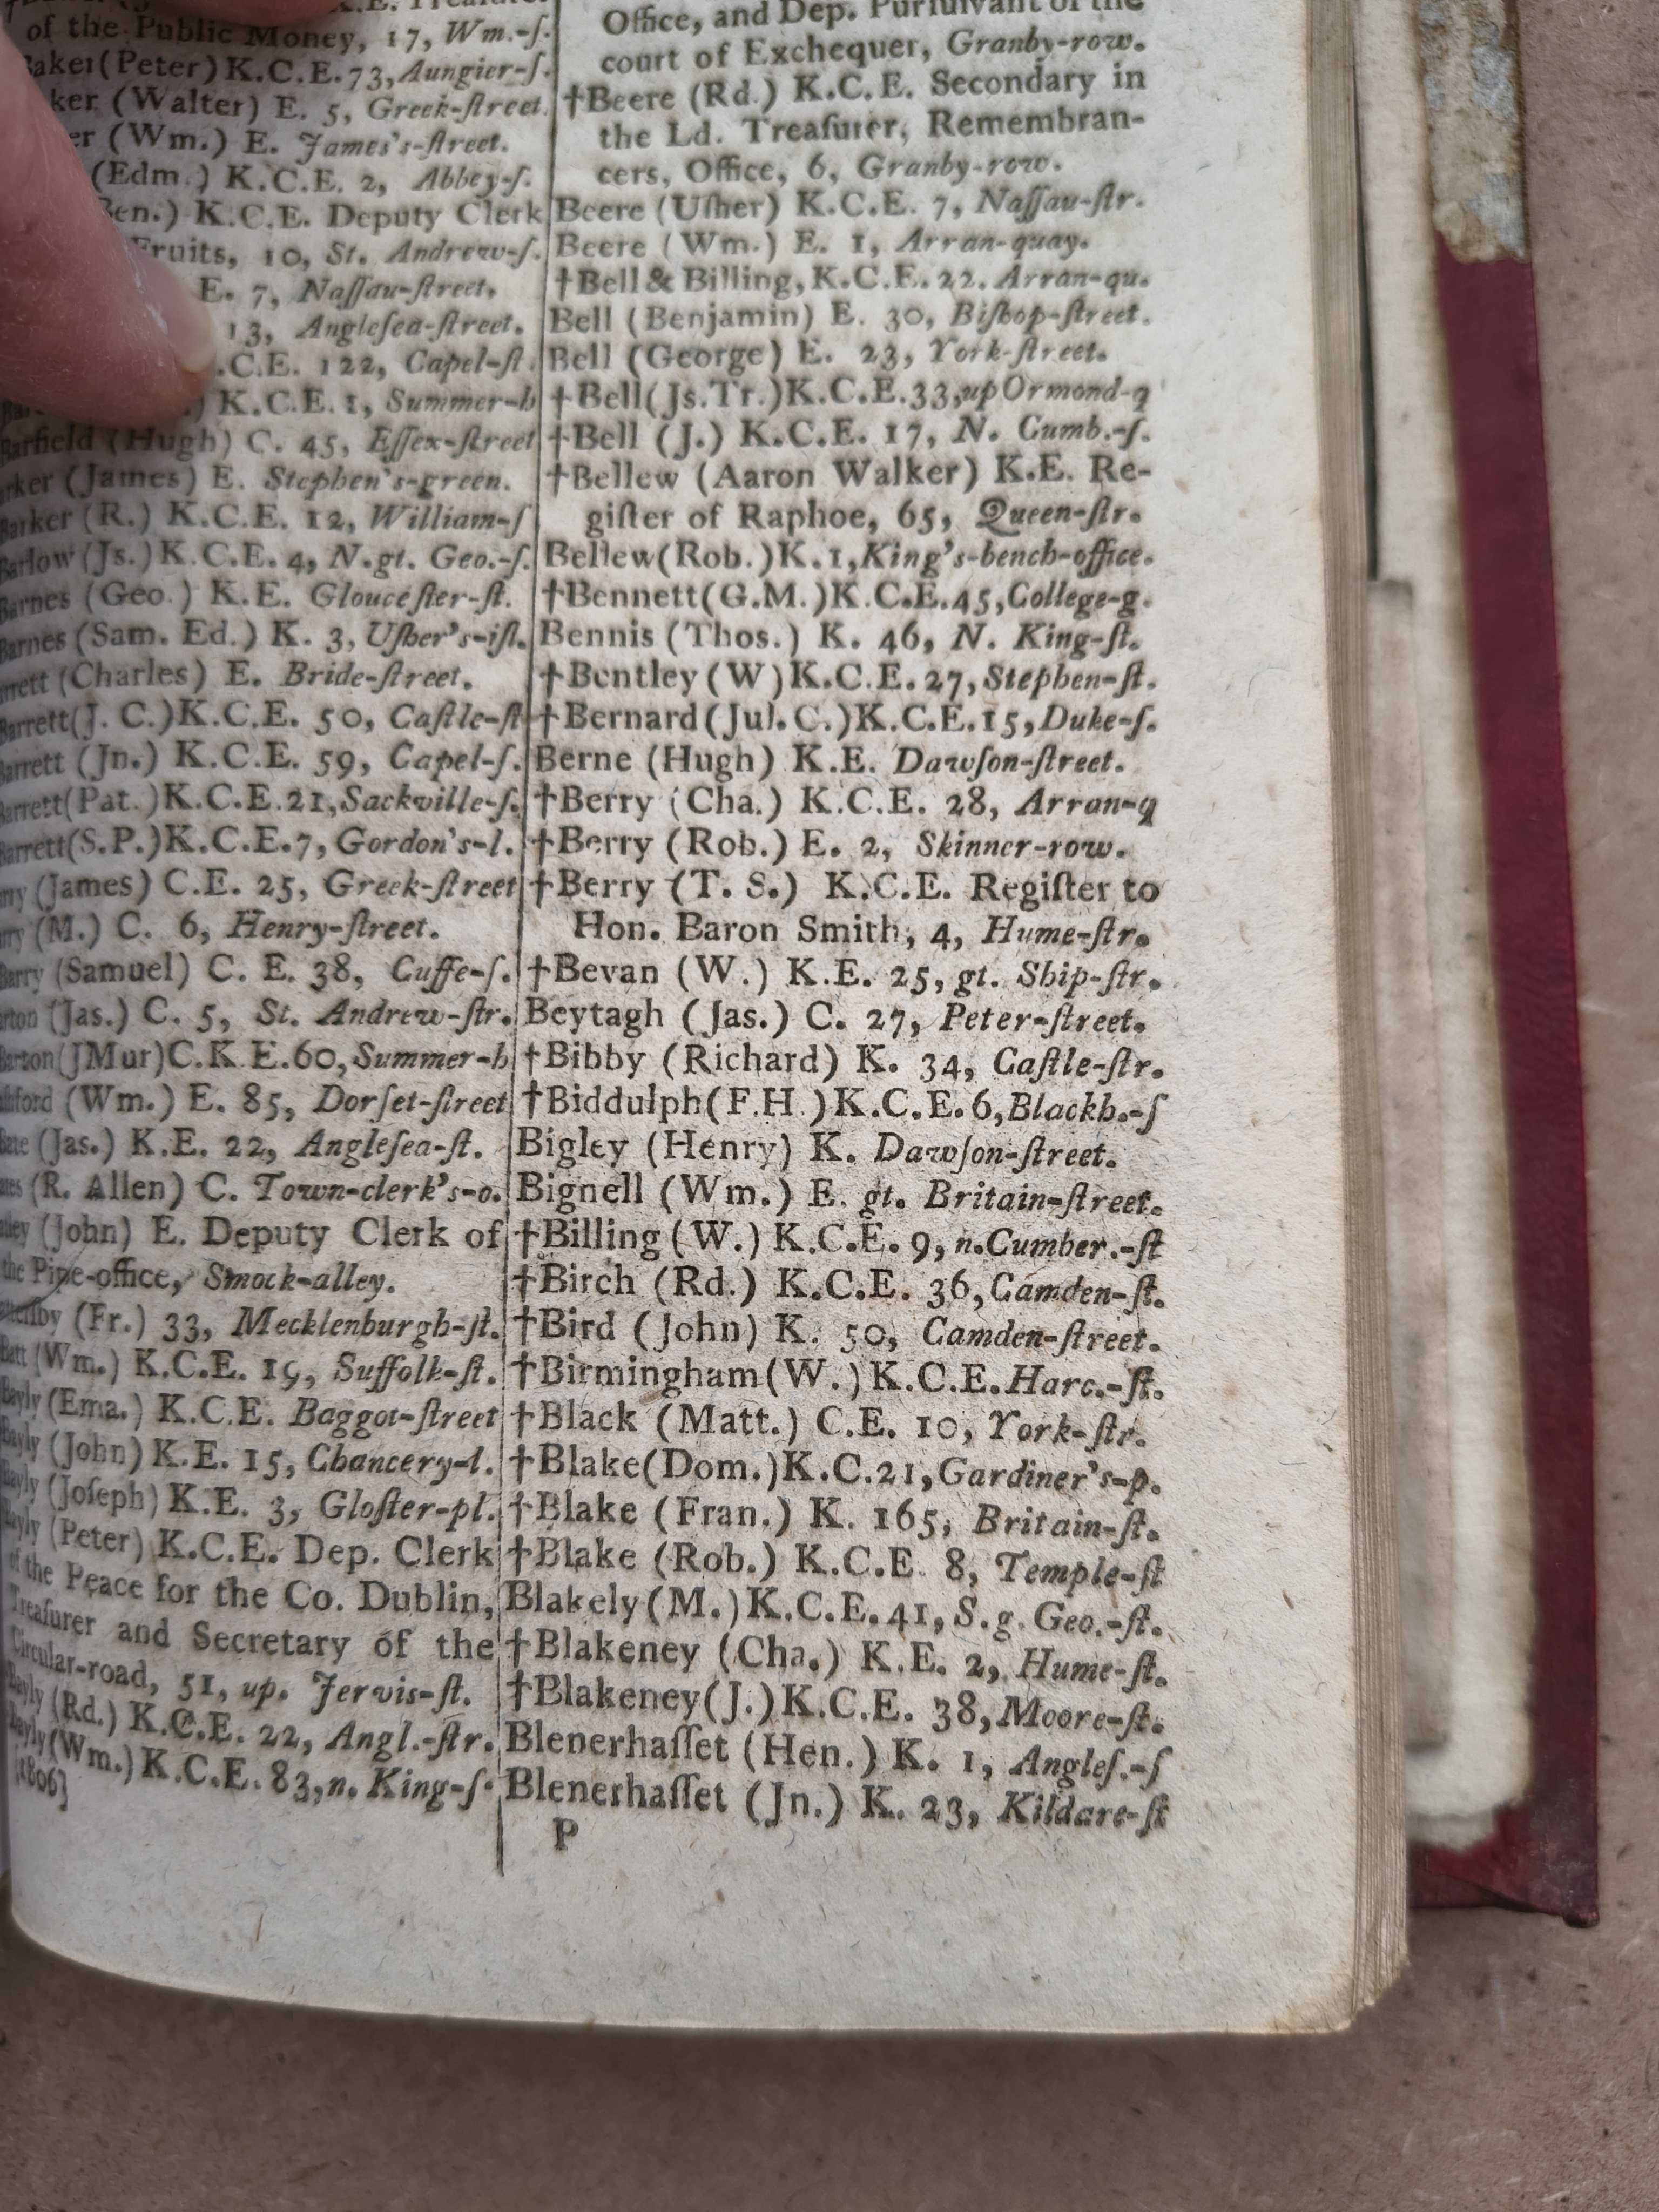 of the Public Money, 17, Wm.-ſ.
(Peter) K.C.E. 73, Aungier-ſ.
(Walter) E. 5, Greek-ſtreet.
(Wm.) E. James's-ſtreet.
(Edm.) K.C.E. 2, Abbey-ſ.
K.C.E. Deputy Clerk
10, St. Andrew-ſ.
E. 7, Naſſau-ſtreet,
13, Angleſea-ſtreet.
.C.E. 122, Capel-ſt.
K.C.E. 1, Summer-h
Barfield (Hugh) C. 45, Eſſex-ſtreet
(James) E. Stephen's-green.
Barker (R.) K.C.E. 12, William-ſ
Barlow (Js.) K.C.E. 4, N.gt. Geo.-ſ.
Barnes (Geo.) K.E. Glouceſter-ſt.
Barnes (Sam. Ed.) K. 3, Uſher's-iſl.
(Charles) E. Bride-ſtreet.
Barrett (J. C.) K.C.E. 50, Caſtle-ſt
Barrett (Jn.) K.C.E. 59, Capel-ſ.
Barrett (Pat.) K.C.E. 21, Sackville-ſ.
Barrett (S.P.) K.C.E. 7, Gordon's-l.
(James) C.E. 25, Greek-ſtreet
(M.) C. 6, Henry-ſtreet.
Barry (Samuel) C. E. 38, Cuffe-ſ.
(Jas.) C. 5, St. Andrew-ſtr.
Barton (JMur) C.K E. 60, Summer-h
(Wm.) E. 85, Dorſet-ſtreet
(Jas.) K.E. 22, Angleſea-ſt.
(R. Allen) C. Town-clerk's-o.
(John) E. Deputy Clerk of
the Pipe-office, Smock-alley.
(Fr.) 33, Mecklenburgh-ſt.
Batt (Wm.) K.C.E. 19, Suffolk-ſt.
Bayly (Ema.) K.C.E. Baggot-ſtreet
Bayly (John) K.E. 15, Chancery-l.
Bayly (Joſeph) K.E. 3, Gloſter-pl.
Bayly (Peter) K.C.E. Dep. Clerk
of the Peace for the Co. Dublin,
Treaſurer and Secretary of the
Circular-road, 51, up. Jervis-ſt.
Bayly (Rd.) K.C.E. 22, Angl.-ſtr.
Bayly (Wm.) K.C.E. 83, n. King-ſ.
[1806]
Office, and Dep. Purſuivant of the
court of Exchequer, Granby-row.
†Beere (Rd.) K.C.E. Secondary in
the Ld. Treaſurer, Remembran-
cers, Office, 6, Granby-row.
Beere (Uſher) K.C.E. 7, Naſſau-ſtr.
Beere (Wm.) E. 1, Arran-quay.
†Bell & Billing, K.C.E. 22. Arran-qu.
Bell (Benjamin) E. 30, Biſhop-ſtreet.
Bell (George) E. 23, York-ſtreet.
†Bell (Js.Tr.) K.C.E. 33, up Ormond-q
†Bell (J.) K.C.E. 17, N. Cumb.-ſ.
†Bellew (Aaron Walker) K.E. Re-
giſter of Raphoe, 65, Queen-ſtr.
Bellew (Rob.) K. 1, King's-bench-office.
†Bennett (G.M.) K.C.E. 45, College-g.
Bennis (Thos.) K. 46, N. King-ſt.
†Bentley (W) K.C.E. 27, Stephen-ſt.
†Bernard (Jul.C.) K.C.E. 15, Duke-ſ.
Berne (Hugh) K.E. Dawſon-ſtreet.
†Berry (Cha.) K.C.E. 28, Arran-q
†Berry (Rob.) E. 2, Skinner-row.
†Berry (T. S.) K.C.E. Regiſter to
Hon. Baron Smith, 4, Hume-ſtr.
†Bevan (W.) K.E. 25, gt. Ship-ſtr.
Beytagh (Jas.) C. 27, Peter-ſtreet.
†Bibby (Richard) K. 34, Caſtle-ſtr.
†Biddulph (F.H.) K.C.E. 6, Blackh.-ſ
Bigley (Henry) K. Dawſon-ſtreet.
Bignell (Wm.) E. gt. Britain-ſtreet.
†Billing (W.) K.C.E. 9, n.Cumber.-ſt
†Birch (Rd.) K.C.E. 36, Camden-ſt.
†Bird (John) K. 50, Camden-ſtreet.
†Birmingham (W.) K.C.E. Harc.-ſt.
†Black (Matt.) C.E. 10, York-ſtr.
†Blake (Dom.) K.C. 21, Gardiner's-p.
†Blake (Fran.) K. 165, Britain-ſt.
†Blake (Rob.) K.C.E. 8, Temple-ſt
Blakely (M.) K.C.E. 41, S.g. Geo.-ſt.
†Blakeney (Cha.) K.E. 2, Hume-ſt.
†Blakeney (J.) K.C.E. 38, Moore-ſt.
Blenerhaſſet (Hen.) K. 1, Angleſ.-ſ
Blenerhaſſet (Jn.) K. 23, Kildare-ſt
P